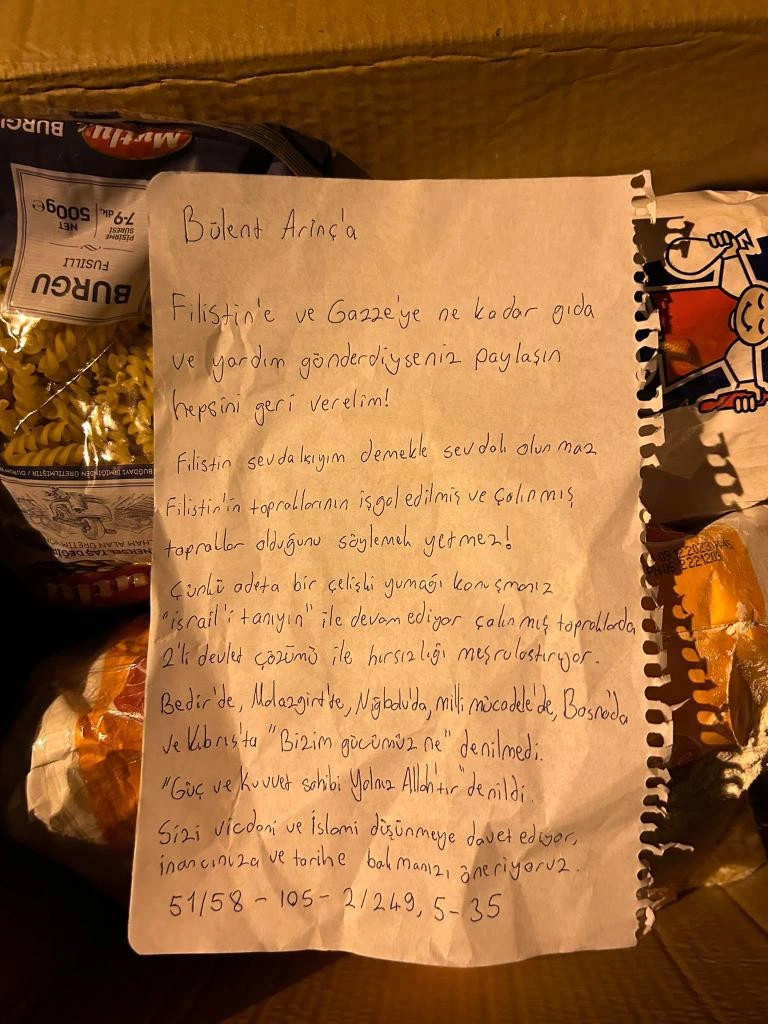 Mutlu
BURGU
BURGU
FUSILLI
PİŞİRME SÜRESİ
7-9 dk.
NET
500g e
Bülent Arınç'a
Filistin'e ve Gazze'ye ne kadar gıda
ve yardım gönderdiyseniz paylaşın
hepsini geri verelim!
Filistin sevdalısıyım demekle sevdalı olunmaz
Filistin'in topraklarının işgal edilmiş ve çalınmış
topraklar olduğunu söylemek yetmez!
Çünkü adeta bir çelişki yumağı konuşmanız
"israil'i tanıyın" ile devam ediyor çalınmış topraklarda
2'li devlet çözümü ile hırsızlığı meşrulaştırıyor.
Bedir'de, Malazgirt'te, Niğbolu'da, milli mücadele'de, Bosna'da
ve Kıbrıs'ta "Bizim gücümüz ne" denilmedi.
"Güç ve Kuvvet sahibi Yalnız Allah'tır" denildi.
Sizi vicdani ve İslami düşünmeye davet ediyor,
inancınıza ve tarihe bakmanızı öneriyoruz.
51/58 - 105 - 2/249, 5-35